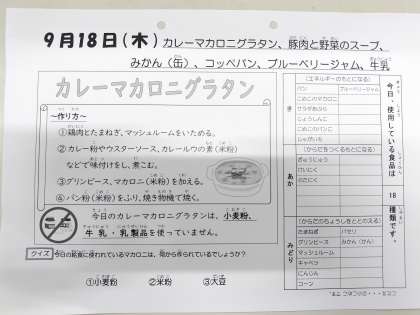 9月18日(木) カレーマカロニグラタン、豚肉と野菜のスープ、
みかん(缶)、コッペパン、ブルーベリージャム、牛乳
カレーマカロニグラタン
～作り方～
①鶏肉とたまねぎ、マッシュルームをいためる。
②カレー粉やウスターソース、カレールウの素(米粉)
などで味付けをし、煮こむ。
③グリンピース、マカロニ(米粉)を加える。
④パン粉(米粉)をふり、焼き物機で焼く。
今日のカレーマカロニグラタンは、小麦粉、
牛乳・乳製品を使っていません。
クイズ 今日の給食に使われているマカロニは、何から作られているでしょうか?
①小麦粉 ②米粉 ③大豆
今日、使用している食品は 18 種類です。
き
(エネルギーのもとになる)
パン ブルーベリージャム
こめこマカロニ
じゃがいも
あか
(からだをつくるもとになる)
ぎゅうにゅう
とりにく
ぶたにく
みどり
(からだのちょうしをととのえる)
たまねぎ パセリ
グリンピース みかん(かん)
マッシュルーム
キャベツ
にんじん
コーン